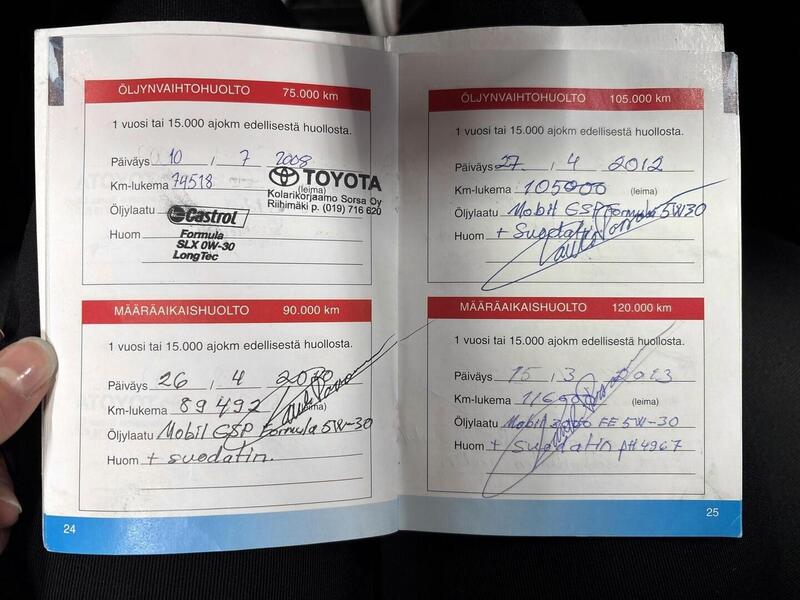 ÖLJYNVAIHTOHUOLTO 75.000 km
1 vuosi tai 15.000 ajokm edellisestä huollosta.
Päiväys 10 , 7 2008
Km-lukema 74518 (leima)
TOYOTA
Kolarikorjaamo Sorsa Oy
Riihimäki p. (019) 716 620
Öljylaatu Castrol
Huom Formula
SLX 0W-30
LongTec
MÄÄRÄAIKAISHUOLTO 90.000 km
1 vuosi tai 15.000 ajokm edellisestä huollosta.
Päiväys 26 , 4 2010
Km-lukema 89492 (leima)
Öljylaatu Mobil GSP Formula 5W-30
Huom + suodatin.
24
ÖLJYNVAIHTOHUOLTO 105.000 km
1 vuosi tai 15.000 ajokm edellisestä huollosta.
Päiväys 27. , 4 2012
Km-lukema 105000 (leima)
Öljylaatu Mobil GSP Formula 5W30
Huom + Suodatin
MÄÄRÄAIKAISHUOLTO 120.000 km
1 vuosi tai 15.000 ajokm edellisestä huollosta.
Päiväys 15 , 3 2013
Km-lukema (leima)
Öljylaatu Mobil 3000 FE 5W-30
Huom + Suodatin pH4967
25